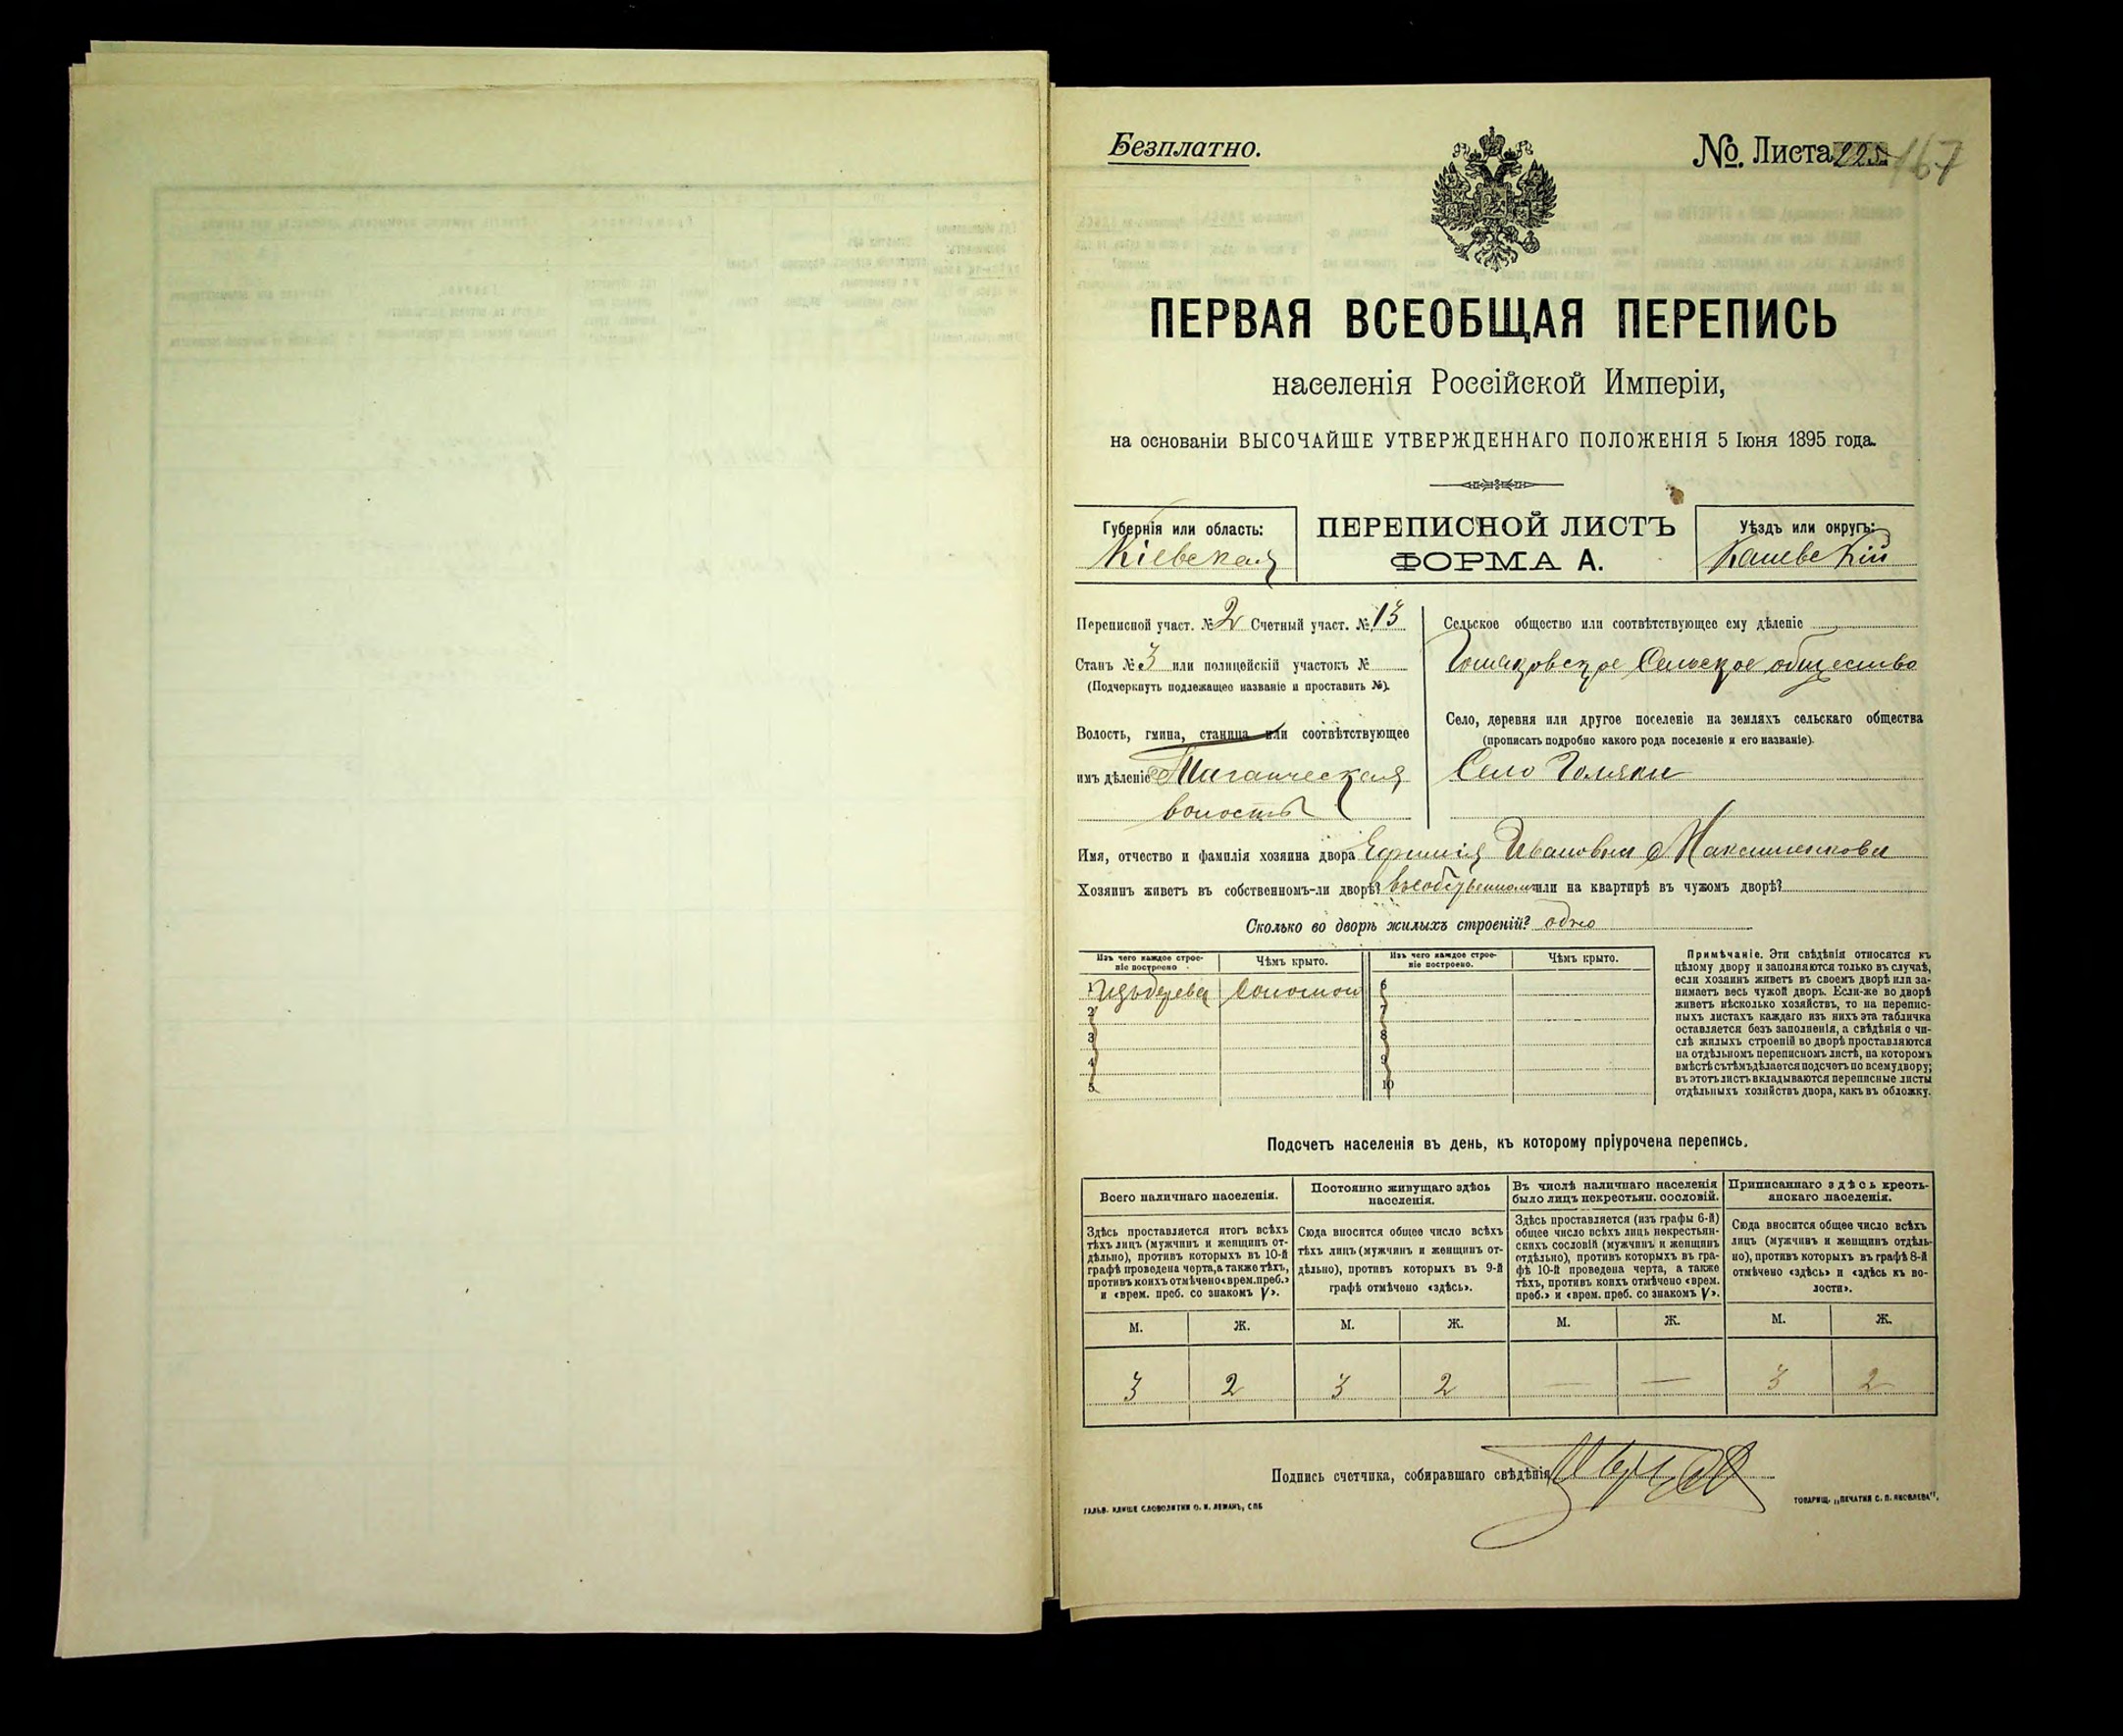 Безплатно.
№. Листа 225 167
ПЕРВАЯ ВСЕОБЩАЯ ПЕРЕПИСЬ
населенія Россійской Имперіи,
на основаніи ВЫСОЧАЙШЕ УТВЕРЖДЕННАГО ПОЛОЖЕНІЯ 5 Іюня 1895 года.
Губернія или область:
Кіевская
ПЕРЕПИСНОЙ ЛИСТЪ
ФОРМА А.
Уѣздъ или округъ:
Каневскій
Переписной участ. № 2 Счетный участ. № 13
Станъ № 3 или полицейскій участокъ №
(Подчеркнуть подлежащее названіе и проставить №).
Волость, гмина, станица или соотвѣтствующее
имъ дѣленіе
волость
Сельское общество или соотвѣтствующее ему дѣленіе
Сельское общество
Село, деревня или другое поселеніе на земляхъ сельскаго общества
(прописать подробно какого рода поселеніе и его названіе).
Село
Имя, отчество и фамилія хозяина двора Ивановна Максименкова
Хозяинъ живетъ въ собственномъ-ли дворѣ? въ собственномъ или на квартирѣ въ чужомъ дворѣ?
Сколько во дворѣ жилыхъ строеній? одно
Изъ чего каждое строе-
ніе построено
Чѣмъ крыто.
Изъ чего каждое строе-
ніе построено.
Чѣмъ крыто.
1 Изъ дерева Соломой 6
2 7
3 8
4 9
5 10
Примѣчаніе. Эти свѣдѣнія относятся къ
цѣлому двору и заполняются только въ случаѣ,
если хозяинъ живетъ въ своемъ дворѣ или за-
нимаетъ весь чужой дворъ. Если-же во дворѣ
живетъ нѣсколько хозяйствъ, то на перепис-
ныхъ листахъ каждаго изъ нихъ эта табличка
оставляется безъ заполненія, а свѣдѣнія о чи-
слѣ жилыхъ строеній во дворѣ проставляются
на отдѣльномъ переписномъ листѣ, на которомъ
вмѣстѣ съ тѣмъ дѣлается подсчетъ по всему двору;
въ этотъ листъ вкладываются переписные листы
отдѣльныхъ хозяйствъ двора, какъ въ обложку.
Подсчетъ населенія въ день, къ которому пріурочена перепись.
Всего наличнаго населенія.
Здѣсь проставляется итогъ всѣхъ
тѣхъ лицъ (мужчинъ и женщинъ от-
дѣльно), противъ которыхъ въ 10-й
графѣ проведена черта, а также тѣхъ,
противъ коихъ отмѣчено «врем. преб.»
и «врем. преб. со знакомъ V».
Постоянно живущаго здѣсь
населенія.
Сюда вносится общее число всѣхъ
тѣхъ лицъ (мужчинъ и женщинъ от-
дѣльно), противъ которыхъ въ 9-й
графѣ отмѣчено «здѣсь».
Въ числѣ наличнаго населенія
было лицъ некрестьян. сословій.
Здѣсь проставляется (изъ графы 6-й)
общее число всѣхъ лицъ некрестьян-
скихъ сословій (мужчинъ и женщинъ
отдѣльно), противъ которыхъ въ гра-
фѣ 10-й проведена черта, а также
тѣхъ, противъ коихъ отмѣчено «врем.
преб.» и «врем. преб. со знакомъ V».
Приписаннаго здѣсь кресть-
янскаго населенія.
Сюда вносится общее число всѣхъ
лицъ (мужчинъ и женщинъ отдѣль-
но), противъ которыхъ въ графѣ 8-й
отмѣчено «здѣсь» и «здѣсь къ во-
лости».
М. Ж. М. Ж. М. Ж. М. Ж.
3 2 3 2 — — 3 2
Подпись счетчика, собиравшаго свѣдѣнія
ГАЛЬВ. КЛИШЕ СЛОВОЛИТНИ О. И. ЛЕМАНЪ, СПБ
ТОВАРИЩ. „ПЕЧАТНЯ С. П. ЯКОВЛЕВА".